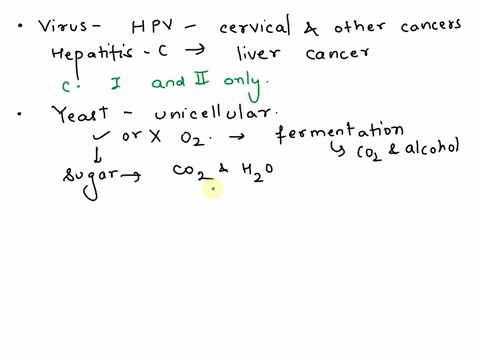 • Virus - HPV - cervical & other cancers
Hepatitis - C → liver cancer
C. I and II only.
• Yeast - unicellular.
✓ or X O2. → fermentation
↳ CO2 & alcohol
↓
Sugar → CO2 & H2O